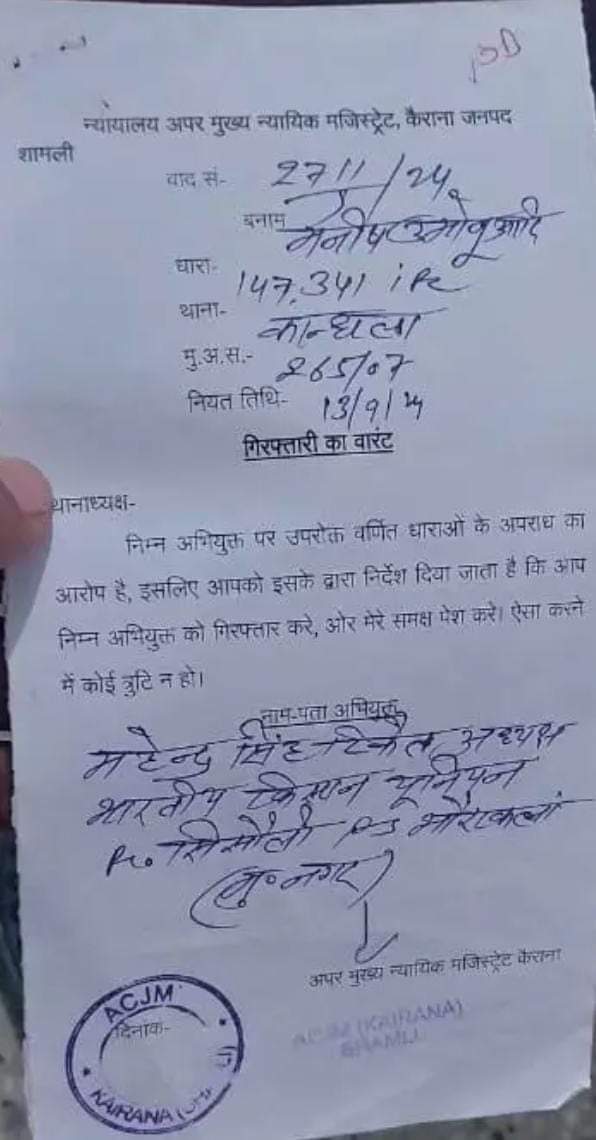 न्यायालय अपर मुख्य न्यायिक मजिस्ट्रेट, कैराना जनपद
शामली
वाद सं- 2711/24
बनाम मनीष उ मोनू आदि
धारा- 147,341 iPc
थाना- कान्धला
मु.अ.स.- 265/07
नियत तिथि- 13/9/24
गिरफ्तारी का वारंट
थानाध्यक्ष-
निम्न अभियुक्त पर उपरोक्त वर्णित धाराओं के अपराध का
आरोप है, इसलिए आपको इसके द्वारा निर्देश दिया जाता है कि आप
निम्न अभियुक्त को गिरफ्तार करे, ओर मेरे समक्ष पेश करे। ऐसा करने
में कोई त्रुटि न हो।
नाम-पता अभियुक्त
महेन्द्र सिंह टिकैत अध्यक्ष
भारतीय किसान यूनियन
R/o सिसौली PS भौराकलां
(मु०नगर)
अपर मुख्य न्यायिक मजिस्ट्रेट कैराना
ACJM
दिनाक-
KAIRANA
ACJM (KAIRANA)
SHAMLI